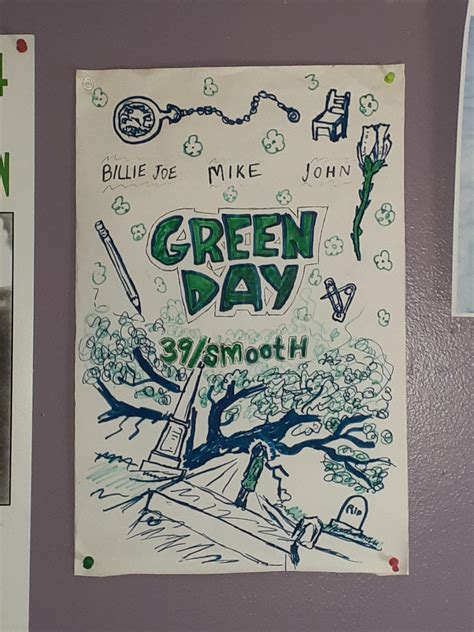 BILLIE JOE MIKE JOHN
GREEN
DAY
39/SMOOTH
RIP